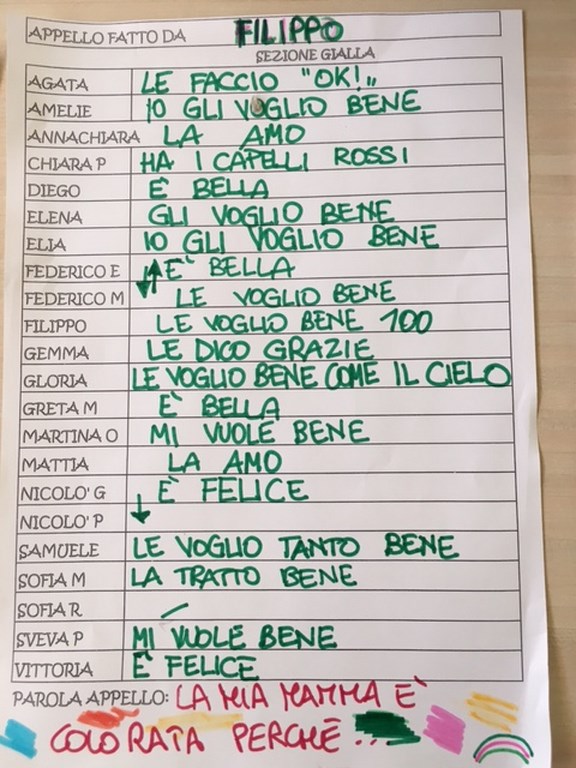 APPELLO FATTO DA FILIPPO
SEZIONE GIALLA
AGATA LE FACCIO "OK!"
AMELIE IO GLI VOGLIO BENE
ANNACHIARA LA AMO
CHIARA P HA I CAPELLI ROSSI
DIEGO È BELLA
ELENA GLI VOGLIO BENE
ELIA IO GLI VOGLIO BENE
FEDERICO E E' BELLA
FEDERICO M LE VOGLIO BENE
FILIPPO LE VOGLIO BENE 100
GEMMA LE DICO GRAZIE
GLORIA LE VOGLIO BENE COME IL CIELO
GRETA M E' BELLA
MARTINA O MI VUOLE BENE
MATTIA LA AMO
NICOLO' G È FELICE
NICOLO' P ↓
SAMUELE LE VOGLIO TANTO BENE
SOFIA M LA TRATTO BENE
SOFIA R
SVEVA P MI VUOLE BENE
VITTORIA È FELICE
PAROLA APPELLO: LA MIA MAMMA E'
COLORATA PERCHÈ...